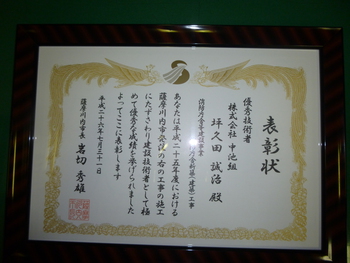 表彰状
優秀技術者
株式会社 中池組
坪久田 誠治 殿
消防庁舎等建設事業
あなたは平成二十五年度における
薩摩川内市発注の右の工事の施工
にたずさわり建設技術者として極
めて優秀な成績を挙げられました
よってここに表彰します
平成二十六年七月三十一日
薩摩川内市長 岩切 秀雄